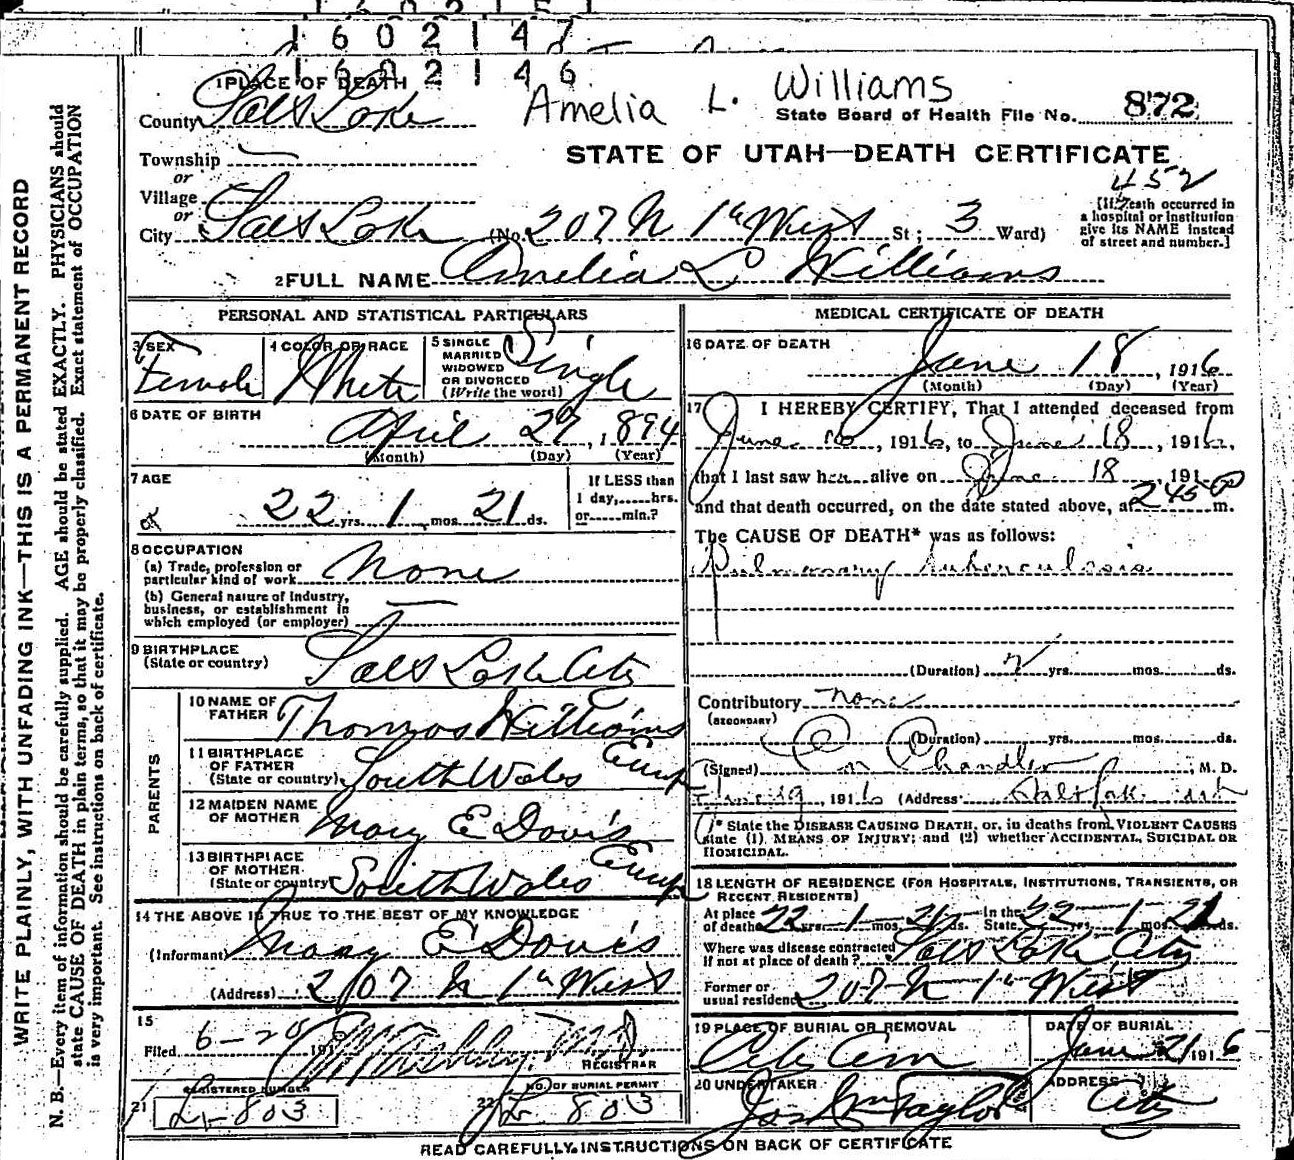 1602147
1602146
Amelia L. Williams
1 PLACE OF DEATH
County Salt Lake
State Board of Health File No. 872
Township
or
Village
or
City Salt Lake (No. 207 N 1st West St; 3 Ward)
STATE OF UTAH—DEATH CERTIFICATE
452
[If death occurred in
a hospital or institution
give its NAME instead
of street and number.]
2 FULL NAME Amelia L Williams
PERSONAL AND STATISTICAL PARTICULARS
3 SEX
Female
4 COLOR OR RACE
White
5 SINGLE
MARRIED
WIDOWED
OR DIVORCED
(Write the word)
Single
6 DATE OF BIRTH
April 27, 1894
(Month) (Day) (Year)
7 AGE
22 yrs. 1 mos. 21 ds.
If LESS than
1 day,......hrs.
or......min.?
8 OCCUPATION
(a) Trade, profession or
particular kind of work None
(b) General nature of industry,
business, or establishment in
which employed (or employer)
9 BIRTHPLACE
(State or country) Salt Lake City
PARENTS
10 NAME OF
FATHER Thomas Williams
11 BIRTHPLACE
OF FATHER
(State or country) South Wales Europ
12 MAIDEN NAME
OF MOTHER Mary E Davis
13 BIRTHPLACE
OF MOTHER
(State or country) South Wales Europ
14 THE ABOVE IS TRUE TO THE BEST OF MY KNOWLEDGE
(Informant) Mary E Davis
(Address) 207 N 1st West
15
Filed 6-20 191
M.D.
REGISTRAR
REGISTERED NUMBER
21 L-803
NO. OF BURIAL PERMIT
22 L 803
MEDICAL CERTIFICATE OF DEATH
16 DATE OF DEATH
June 18, 1916
(Month) (Day) (Year)
17 I HEREBY CERTIFY, That I attended deceased from
June 10, 1916, to June 18, 1916,
that I last saw her alive on June 18 191
and that death occurred, on the date stated above, at 2 45 P m.
The CAUSE OF DEATH* was as follows:
Pulmonary tuberculosis
(Duration) yrs. mos. ds.
Contributory none
(SECONDARY)
(Duration) yrs. mos. ds.
(Signed) Chandler, M. D.
June 19, 1916 (Address)
* State the DISEASE CAUSING DEATH, or, in deaths from VIOLENT CAUSES
state (1) MEANS OF INJURY; and (2) whether ACCIDENTAL, SUICIDAL OR
HOMICIDAL.
18 LENGTH OF RESIDENCE (FOR HOSPITALS, INSTITUTIONS, TRANSIENTS, OR
RECENT RESIDENTS)
At place
of death 22 yrs. 1 mos. 21 ds. In the
State 22 yrs. 1 mos. 21 ds.
Where was disease contracted
If not at place of death? Salt Lake City
Former or
usual residence 207 N 1st West
19 PLACE OF BURIAL OR REMOVAL
City Cem
DATE OF BURIAL
June 21 1916
20 UNDERTAKER
Jos Wm Taylor
ADDRESS
City
READ CAREFULLY INSTRUCTIONS ON BACK OF CERTIFICATE
WRITE PLAINLY, WITH UNFADING INK—THIS IS A PERMANENT RECORD
N. B.—Every item of information should be carefully supplied. AGE should be stated EXACTLY. PHYSICIANS should
state CAUSE OF DEATH in plain terms, so that it may be properly classified. Exact statement of OCCUPATION
is very important. See instructions on back of certificate.